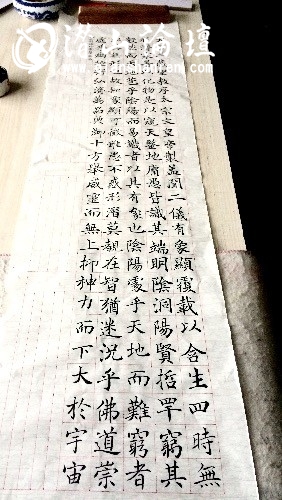 潜山論壇
教序太宗文皇帝製蓋聞二儀有象顯覆載以含生四時無
形潛寒暑以化物是以窺天鑒地庸愚皆識其端明陰洞陽賢哲罕窮其
數然而天地苞乎陰陽而易識者以其有象也陰陽處乎天地而難窮者
以其無形也故知象顯可徵雖愚不惑形潛莫覩在智猶迷況乎佛道崇
虛乘幽控寂弘濟萬品典御十方舉威靈而無上抑神力而下大於宇宙